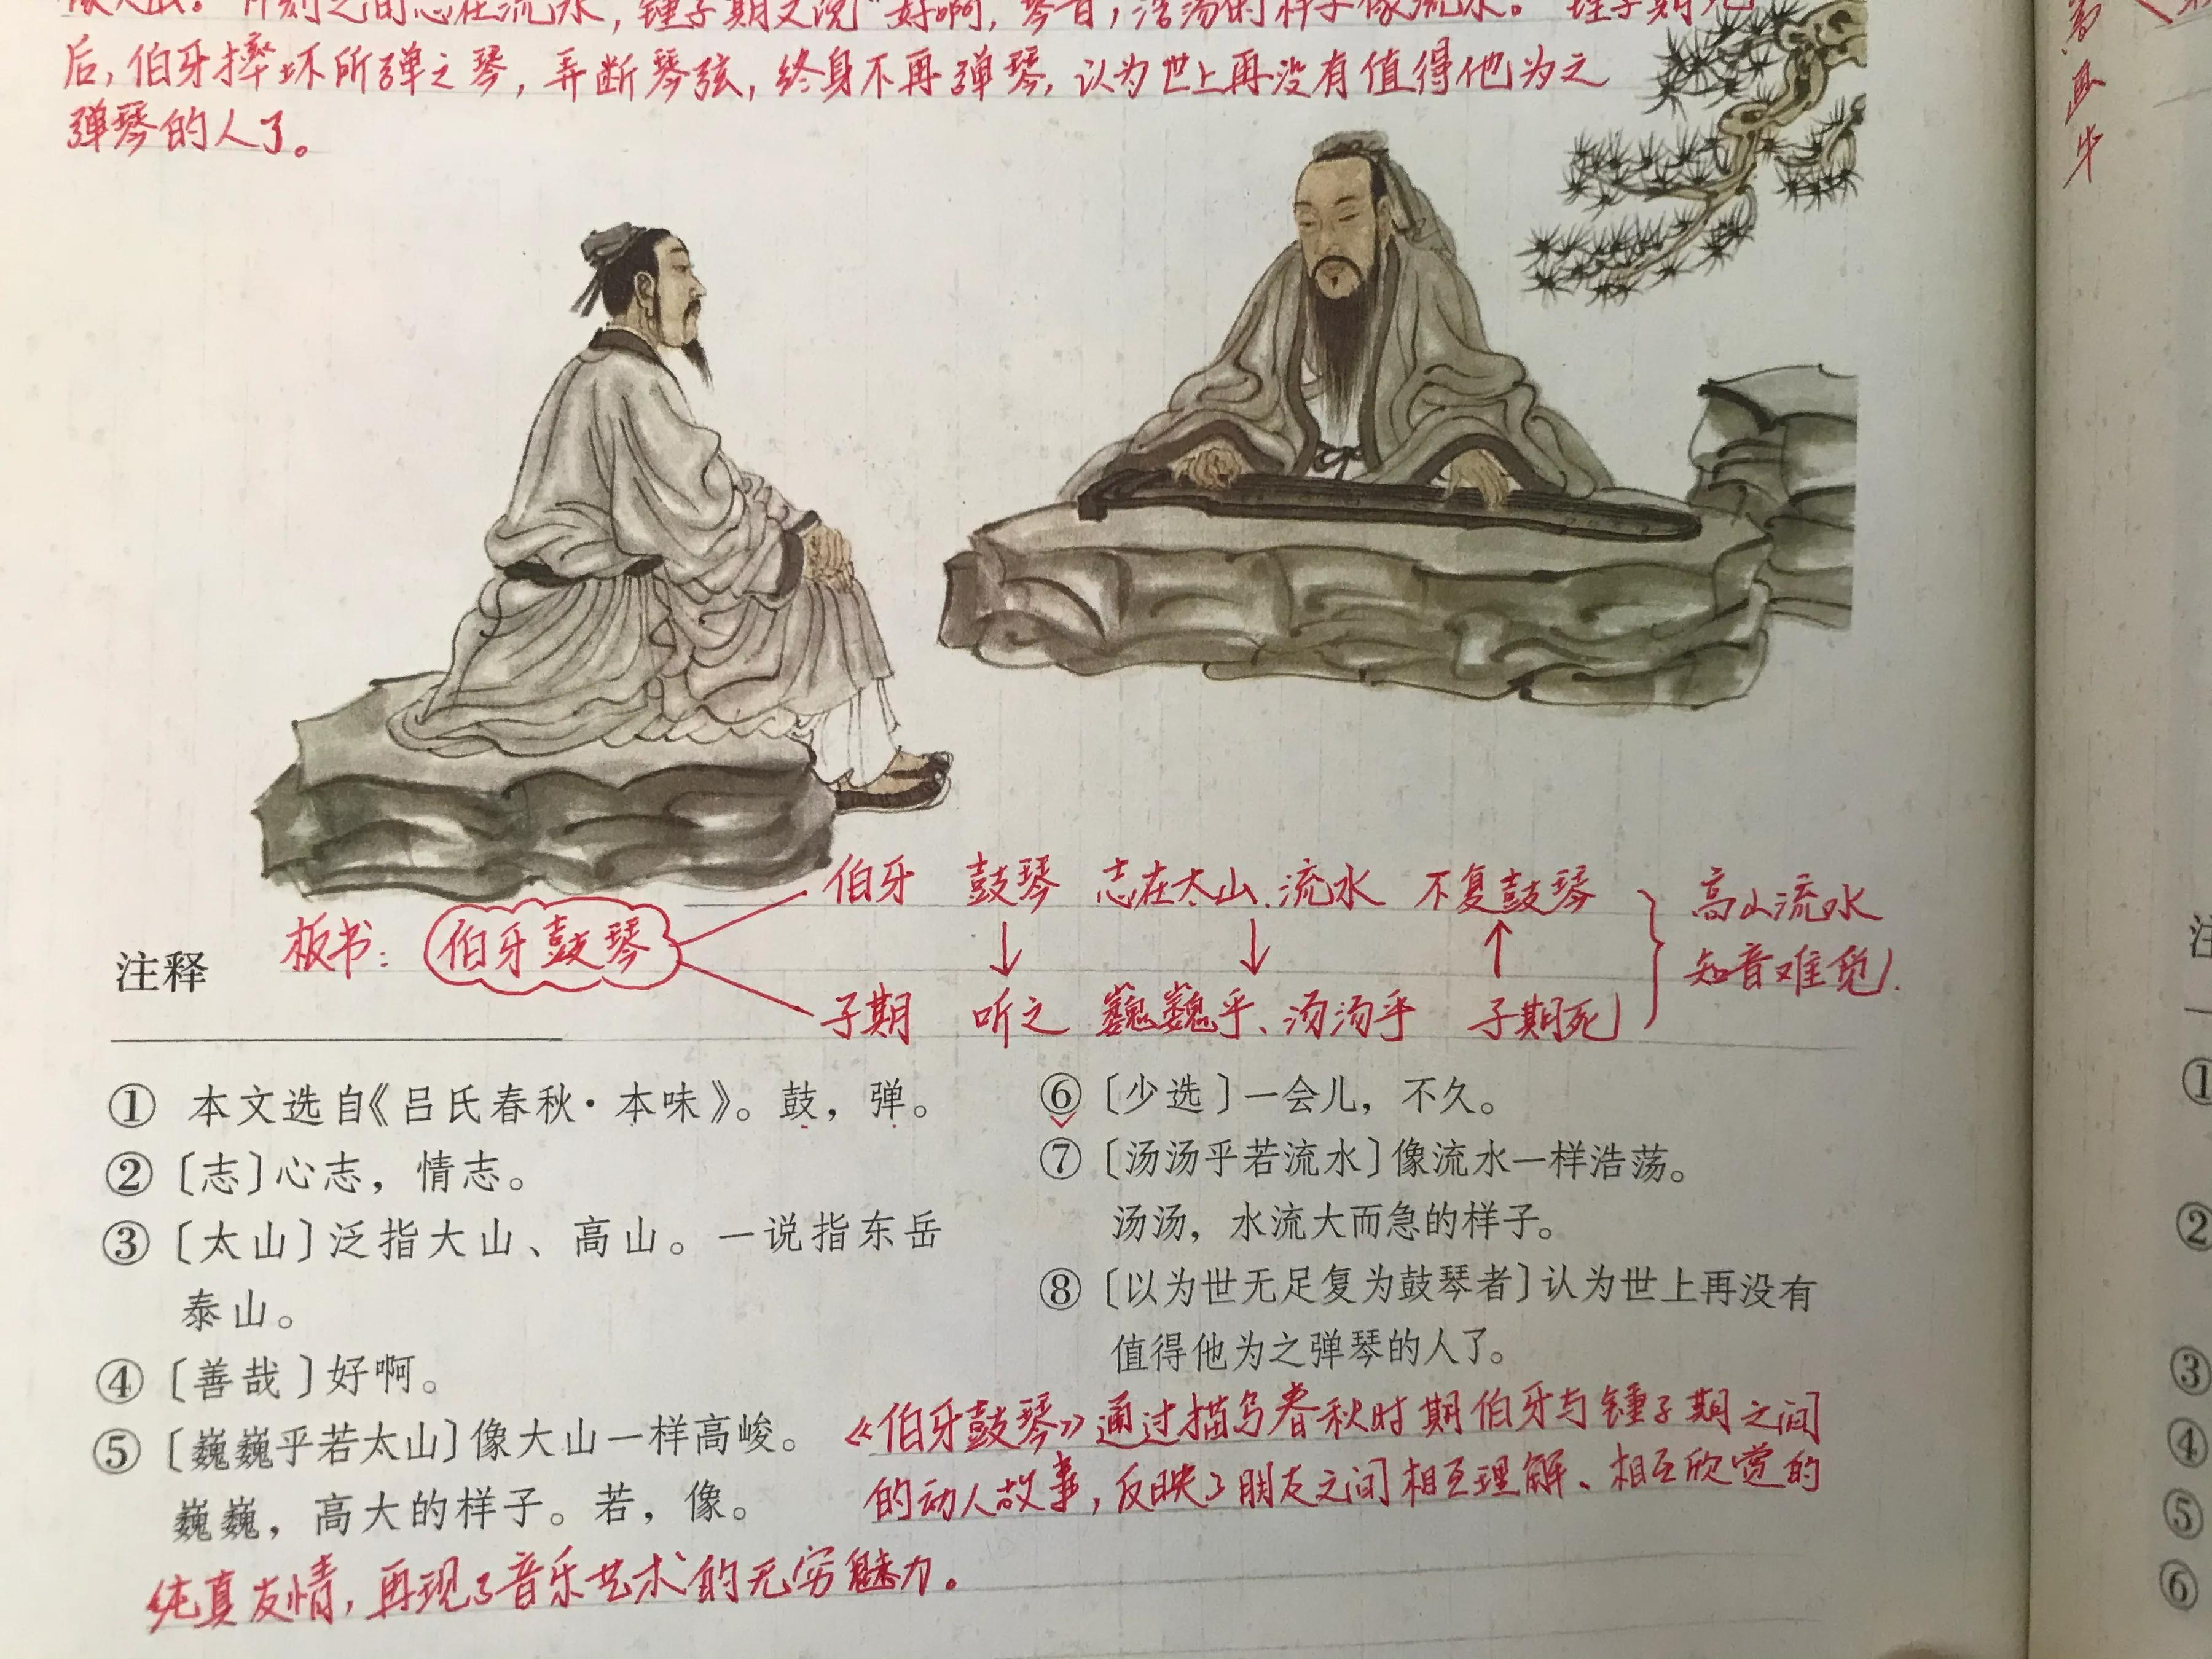 像大山。"片刻之间志在流水,锺子期又说"好啊,琴音,浩荡的样子像流水。"锺子期死
后,伯牙摔坏所弹之琴,弄断琴弦,终身不再弹琴,认为世上再没有值得他为之
弹琴的人了。
伯牙 鼓琴 志在太山、流水 不复鼓琴
板书: 伯牙鼓琴
子期 听之 巍巍乎、汤汤乎 子期死
高山流水
知音难觅
注释
① 本文选自《吕氏春秋·本味》。鼓,弹。
②〔志〕心志,情志。
③〔太山〕泛指大山、高山。一说指东岳
泰山。
④〔善哉〕好啊。
⑤〔巍巍乎若太山〕像大山一样高峻。
巍巍,高大的样子。若,像。
⑥〔少选〕一会儿,不久。
⑦〔汤汤乎若流水〕像流水一样浩荡。
汤汤,水流大而急的样子。
⑧〔以为世无足复为鼓琴者〕认为世上再没有
值得他为之弹琴的人了。
《伯牙鼓琴》通过描写春秋时期伯牙与锺子期之间
的动人故事,反映了朋友之间相互理解、相互欣赏的
纯真友情,再现了音乐艺术的无穷魅力。
画牛
注
①
②
③
④
⑤
⑥